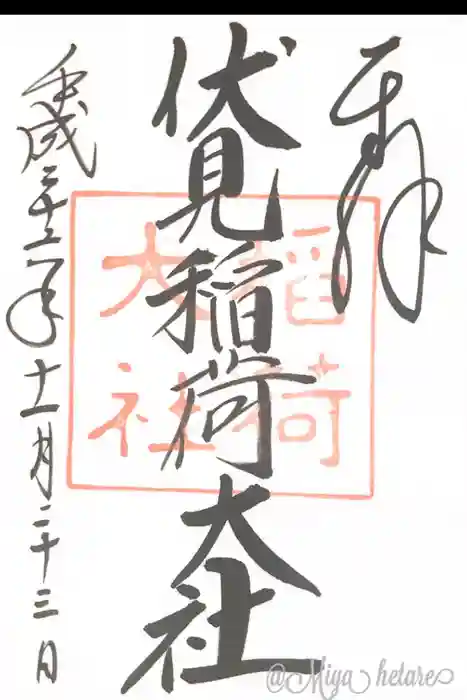 奉拝
伏見稲荷大社
稲荷
大社
平成二十二年十一月二十三日
@Miya hetare